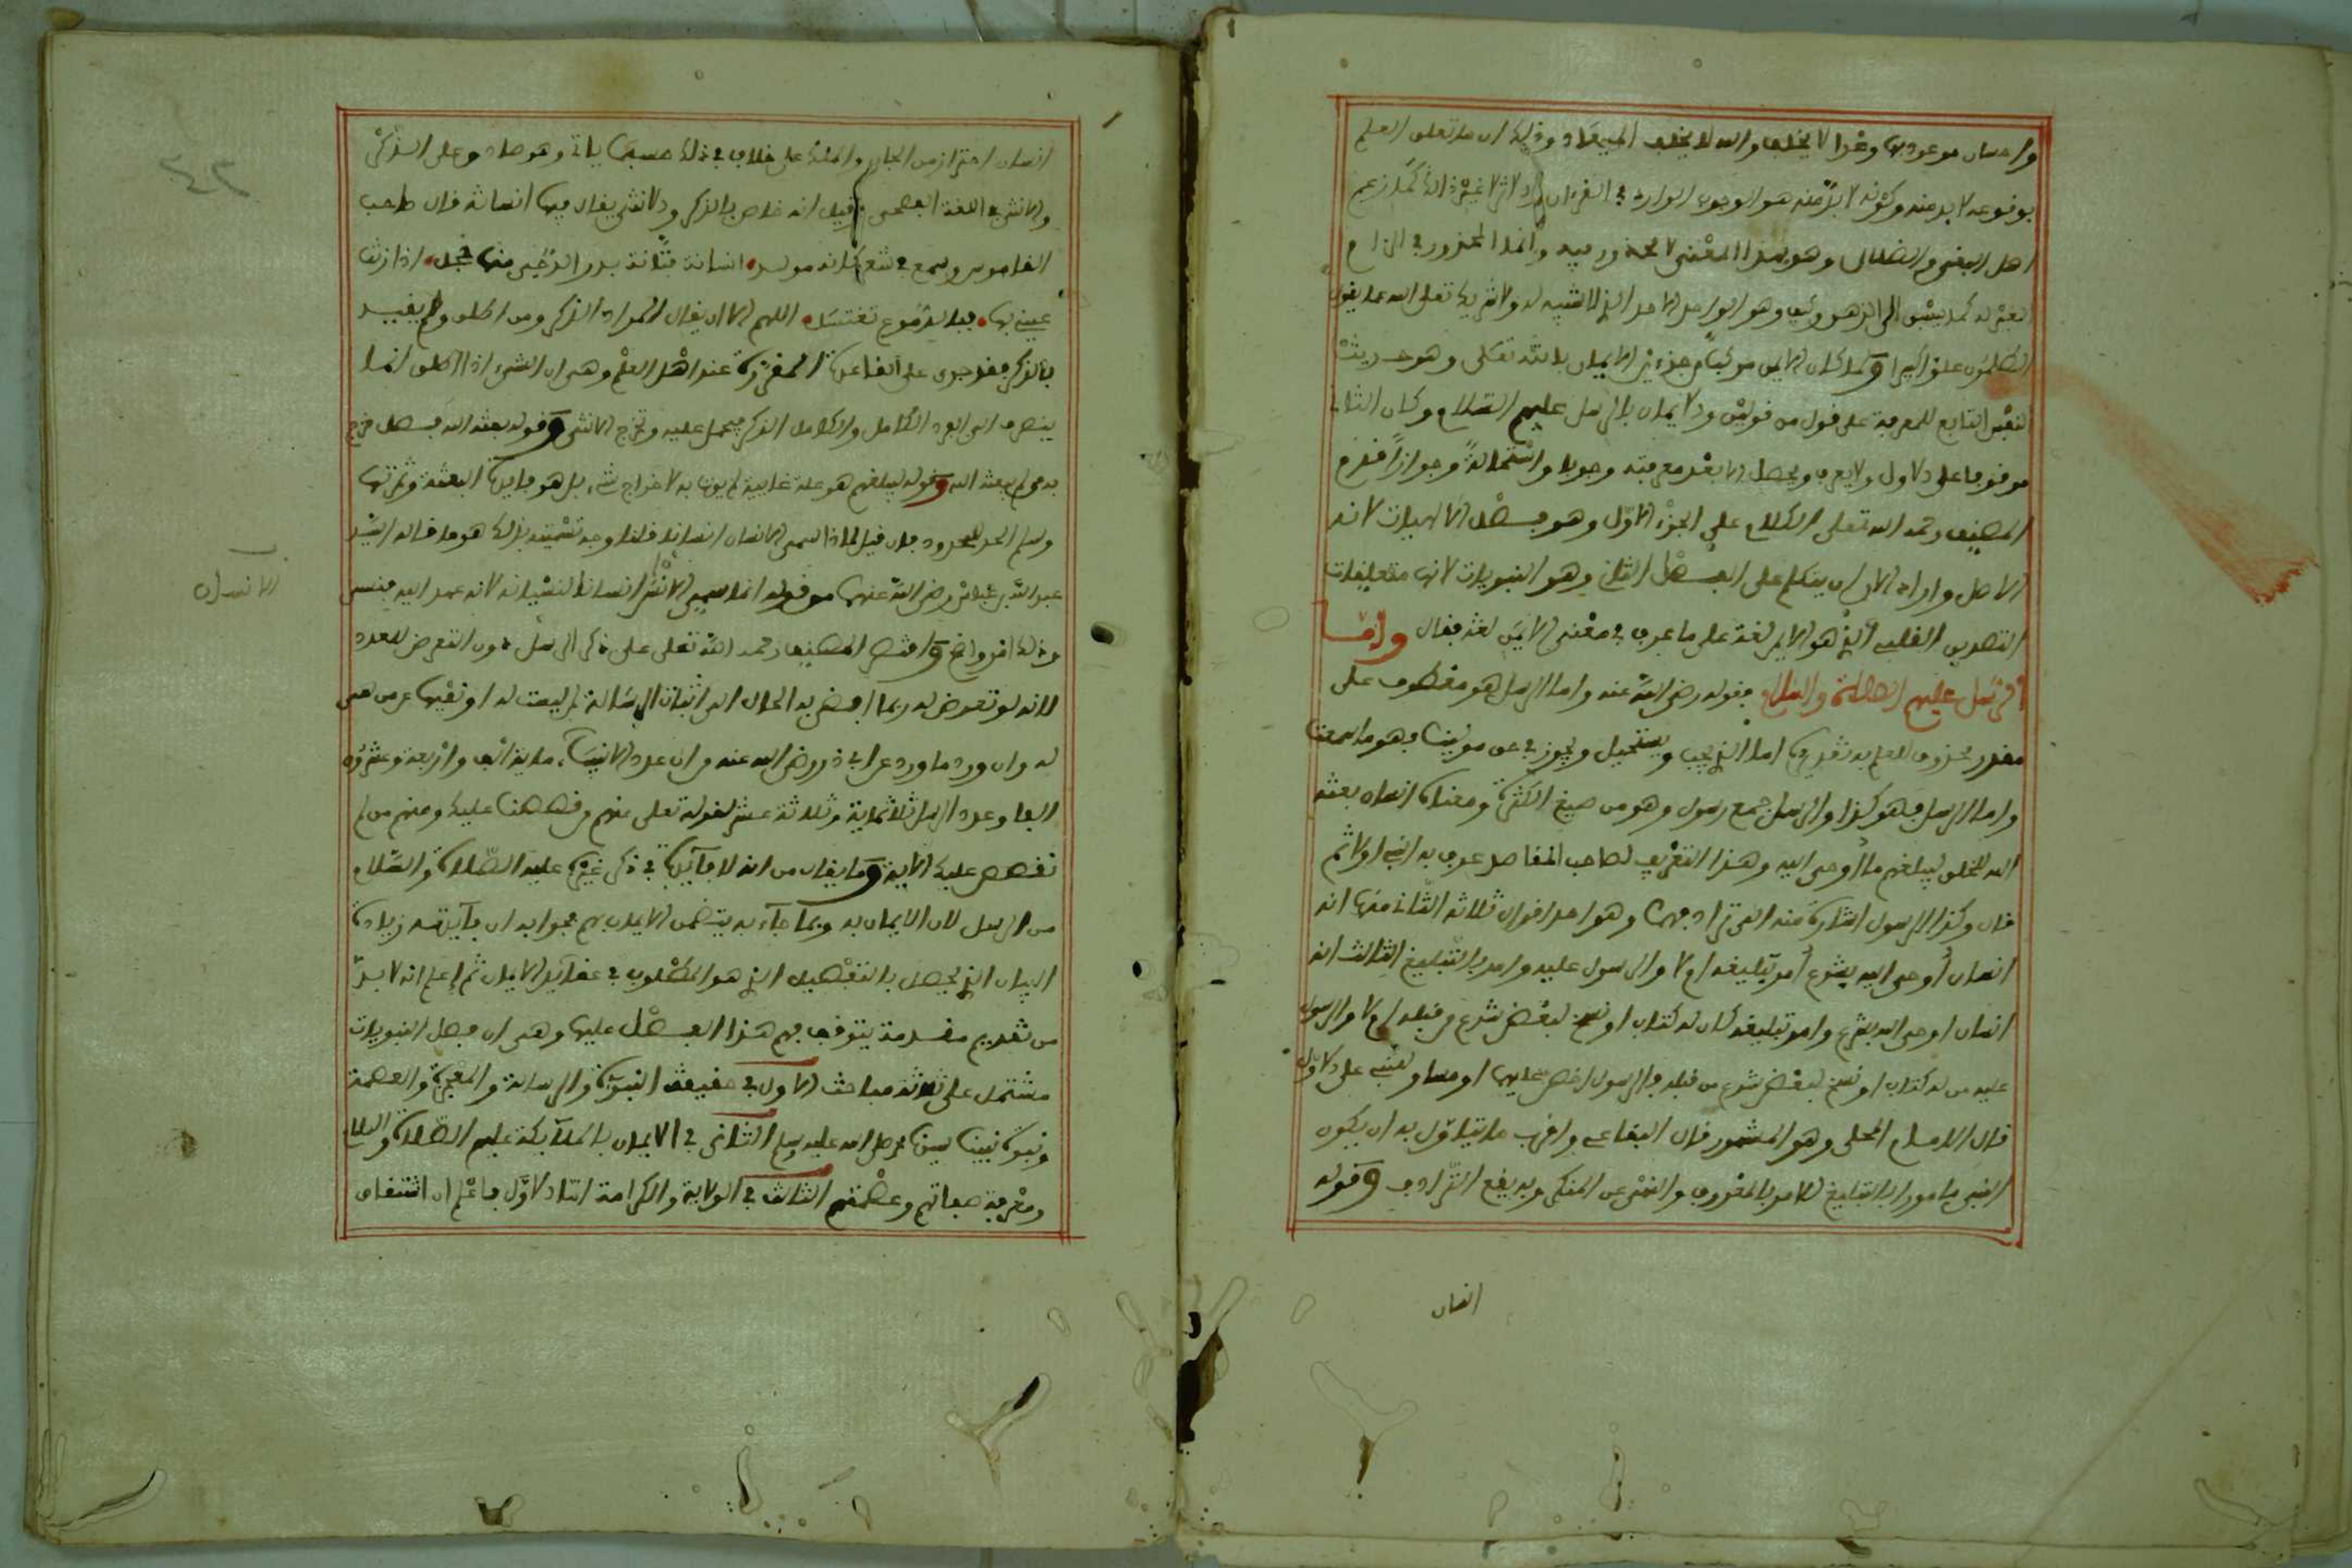 واحسان موعود بها وعدا لا يخلف والله لا يخلف الميعاد وذلك ان ما تعلق العلم
بوقوعه لا بد منه وكونه لا بد منه هو الوجوب الوارد في القرءان والاثر لا غير ذلك كما زعم
اهل البغي والضلال وهو بهذا المعنى لا محذور فيه وانما المحذور في الزام
الغير له كما يسبق الى الذهن وكيف وهو الواحد الاحد الذي لا شبيه له ولا شريك تعلى الله عما يقول
الظلمون علوا كبيرا ولما كان الايمن مركبا من جزءين الايمان بالله تعلى وهو حديث
النفس التابع للمعرفة على قول من قولين والايمان بالرسل عليهم السلام وكان الثاني
موقوفا على الاول ولا يعرف ويحصل الا بعد معرفته وجوبا واستحالة وجوازا قدم
المصنف رحمه الله تعلى الكلام على الجزء الاول وهو فصل الالهيات لانه
الاصل واراد الان ان يتكلم على الفصل الثاني وهو النبويات لانها متعلقات
التصديق القلبي الذي هو الايمن لغة على ما عرف في معنى الايمن لغة فقال وامّا
الرسل عليهم الصلاة والسلام فقوله رضي الله عنه واما الرسل هو معطوف على
مقدر محذوف للعلم به تقديره اما الذي يجب ويستحيل ويجوز في حق مولينا فهو ما سمعت
واما الرسل فهو كذا والرسل جمع رسول وهو من صيغ الكثرة ومعناه انسان بعثه
الله للخلق ليبلغهم ما أوحى اليه وهذا التعريف لصاحب المقاصد عرف به النبي اولا ثم
قال وكذا الرسول اشارة منه الى ترادفهما وهو احد اقوال ثلاثة الثاني منها انه
انسان أوحى اليه بشرع أمر بتبليغه ام لا والرسول عليه وامر بالتبليغ الثالث انه
انسان اوحى اليه بشرع وامر بتبليغه كان له كتاب او نسخ لبعض شرع من قبله ام لا والرسول
عليه من له كتاب او نسخ لبعض شرع من قبله فالرسول اخص عليها او مساو لنبي على الاول
قال الامام المحلي وهو المشهور قال البقاعي واقرب ما يتاول به ان يكون
النبي مامورا بالتبليغ للامر بالمعروف والنهي عن المنكر وبه يقع الترادف وقوله
انسان
انسان احتراز من الجان والملك على خلاف في ذلك حسبما ياتي وهو صادق على الذكر
والانثى في اللغة الفصحى وقيل انه خاص بالذكر والانثى يقال فيها انسانة قال صاحب
القاموس وسمع في شعر كانه مولد انسانة فتانة بدر الدجى منها خجل اذا زنت
عيني بها فبالدموع تغتسل اللهم الا ان يقال المراد الذكر ومن اطلق ولم يقيد
بالذكر فقد جرى على القاعدة المقررة عند اهل العلم وهي ان الشيء اذا اطلق انما
ينصرف الى الفرد الكامل والكامل الذكر فيحمل عليه وتخرج الانثى وقوله بعثه الله فصل خرج
به من لم يبعثه الله وقوله ليبلغهم هو علة غايية لم يوت به لاخراج شيء بل هو فايدة البعثة وثمرتها
وسلم الحد للمحدود فان قيل لماذا سمي الانسان انسانا قلنا وجه تسميته بذلك هو ما قاله السيد
عبد الله بن عباس رضي الله عنهما من قوله انما سمي الانس انسانا لنسيانه لانه عهد اليه فنسي
الانسان
وذلك اثر واضح واقتصر المصنف رحمه الله تعلى على ذكر الرسل دون التعرض للعدد
لانه لو تعرض له ربما افضى به الحال الى اثبات الرسالة لمن ليست له او نفيها عمن هي
له وان ورد ما ورد عن ابي ذر رضي الله عنه من ان عدد الانبياء ماية الف واربعة وعشرون
الفا وعدد الرسل ثلاثماية وثلاثة عشر لقوله تعلى منهم من قصصنا عليك ومنهم من لم
نقصص عليك الاية وما يقال من انه لا فايدة في ذكر غيره عليه الصلاة والسلام
من الرسل لان الايمان به وبما جاء به يتضمن الايمان بهم فجوابه ان فايدته زيادة
البيان الذي يحصل بالتفصيل الذي هو المطلوب في عقايد الايمان ثم إعلم انه لا بد
من تقديم مقدمة يتوقف فهم هذا الفصل عليها وهي ان فصل النبويات
مشتمل على ثلاثة مباحث الاول في حقيقة النبوة والرسالة والمعجزة والعصمة
ونبوة نبينا سيدنا محمد صلى الله عليه وسلم الثاني في الايمان بالملائكة عليهم الصلاة والسلام
ومعرفة صفاتهم وعصمتهم الثالث في الولاية والكرامة اما الاول فاعلم ان اشتقاق